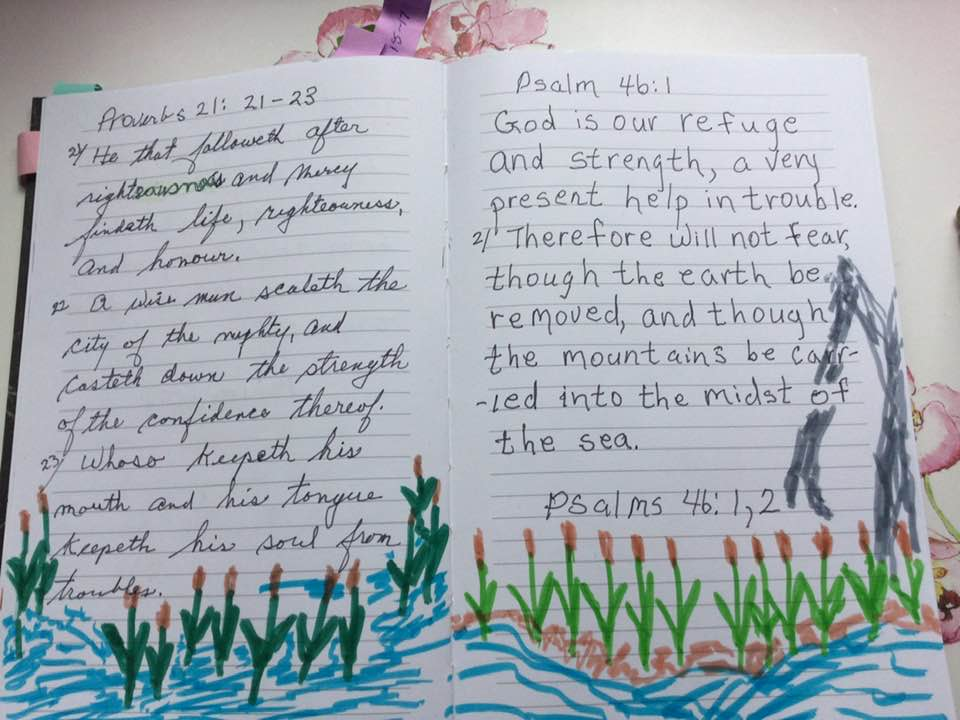 15-17
Proverbs 21: 21-23
21/ He that followeth after
righteousness and mercy
findeth life, righteouness,
and honour.
22 A wise man scaleth the
city of the mighty, and
casteth down the strength
of the confidence thereof.
23/ Whoso keepeth his
mouth and his tongue
keepeth his soul from
troubles.
Psalm 46:1
God is our refuge
and strength, a very
present help in trouble.
2/ Therefore will not fear,
though the earth be
removed, and though
the mountains be carr-
-ied into the midst of
the sea.
Psalms 46:1,2